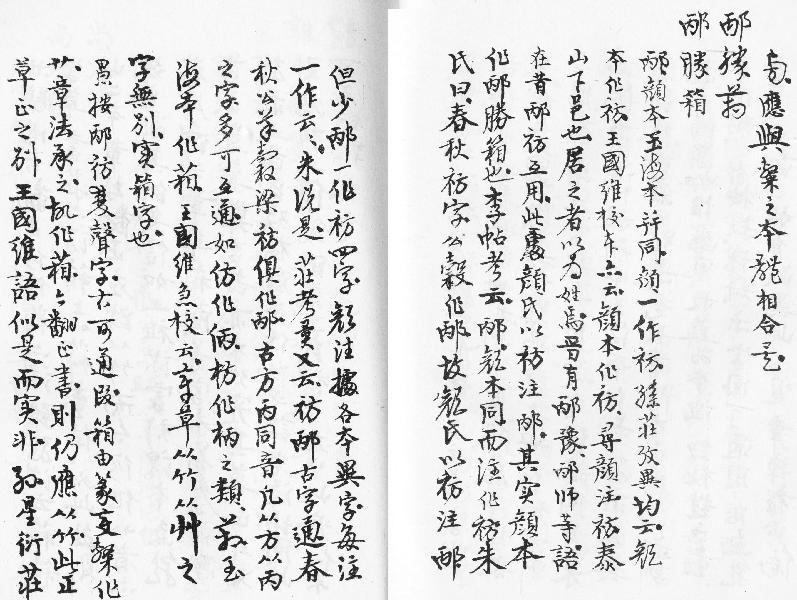 應與槧之本體相合是
邴勝葙
邴勝箱
邴顏本玉海本并同顏一作祊孫莊攷異均云顏
本作祊王國維校本亦云顏本作祊尋顏注祊泰
山下邑也居之者以為姓焉晉有邴豫邴師等語
在昔邴祊互用此處顏氏以祊注邴其實顏本
作邴勝箱也李帖考云邴顏本同而注作祊朱
氏曰春秋祊字公穀作邴故顏氏以祊注邴
但少邴一作祊四字顏注據各本異字每注
一作云云朱說是莊考異又云祊邴古字通春
秋公羊穀梁祊俱作邴古方丙同音凡从方从丙
之字多可互通如仿作㑂枋作柄之類葙玉
海本作葙王國維急校云章草从竹从艸之
字無別實箱字也
愚按邴祊雙聲字古可通段箱由篆變槧作
艹章法承之故作葙今翻正書則仍應从竹此正
草正之別王國維語似是而實非孫星衍莊